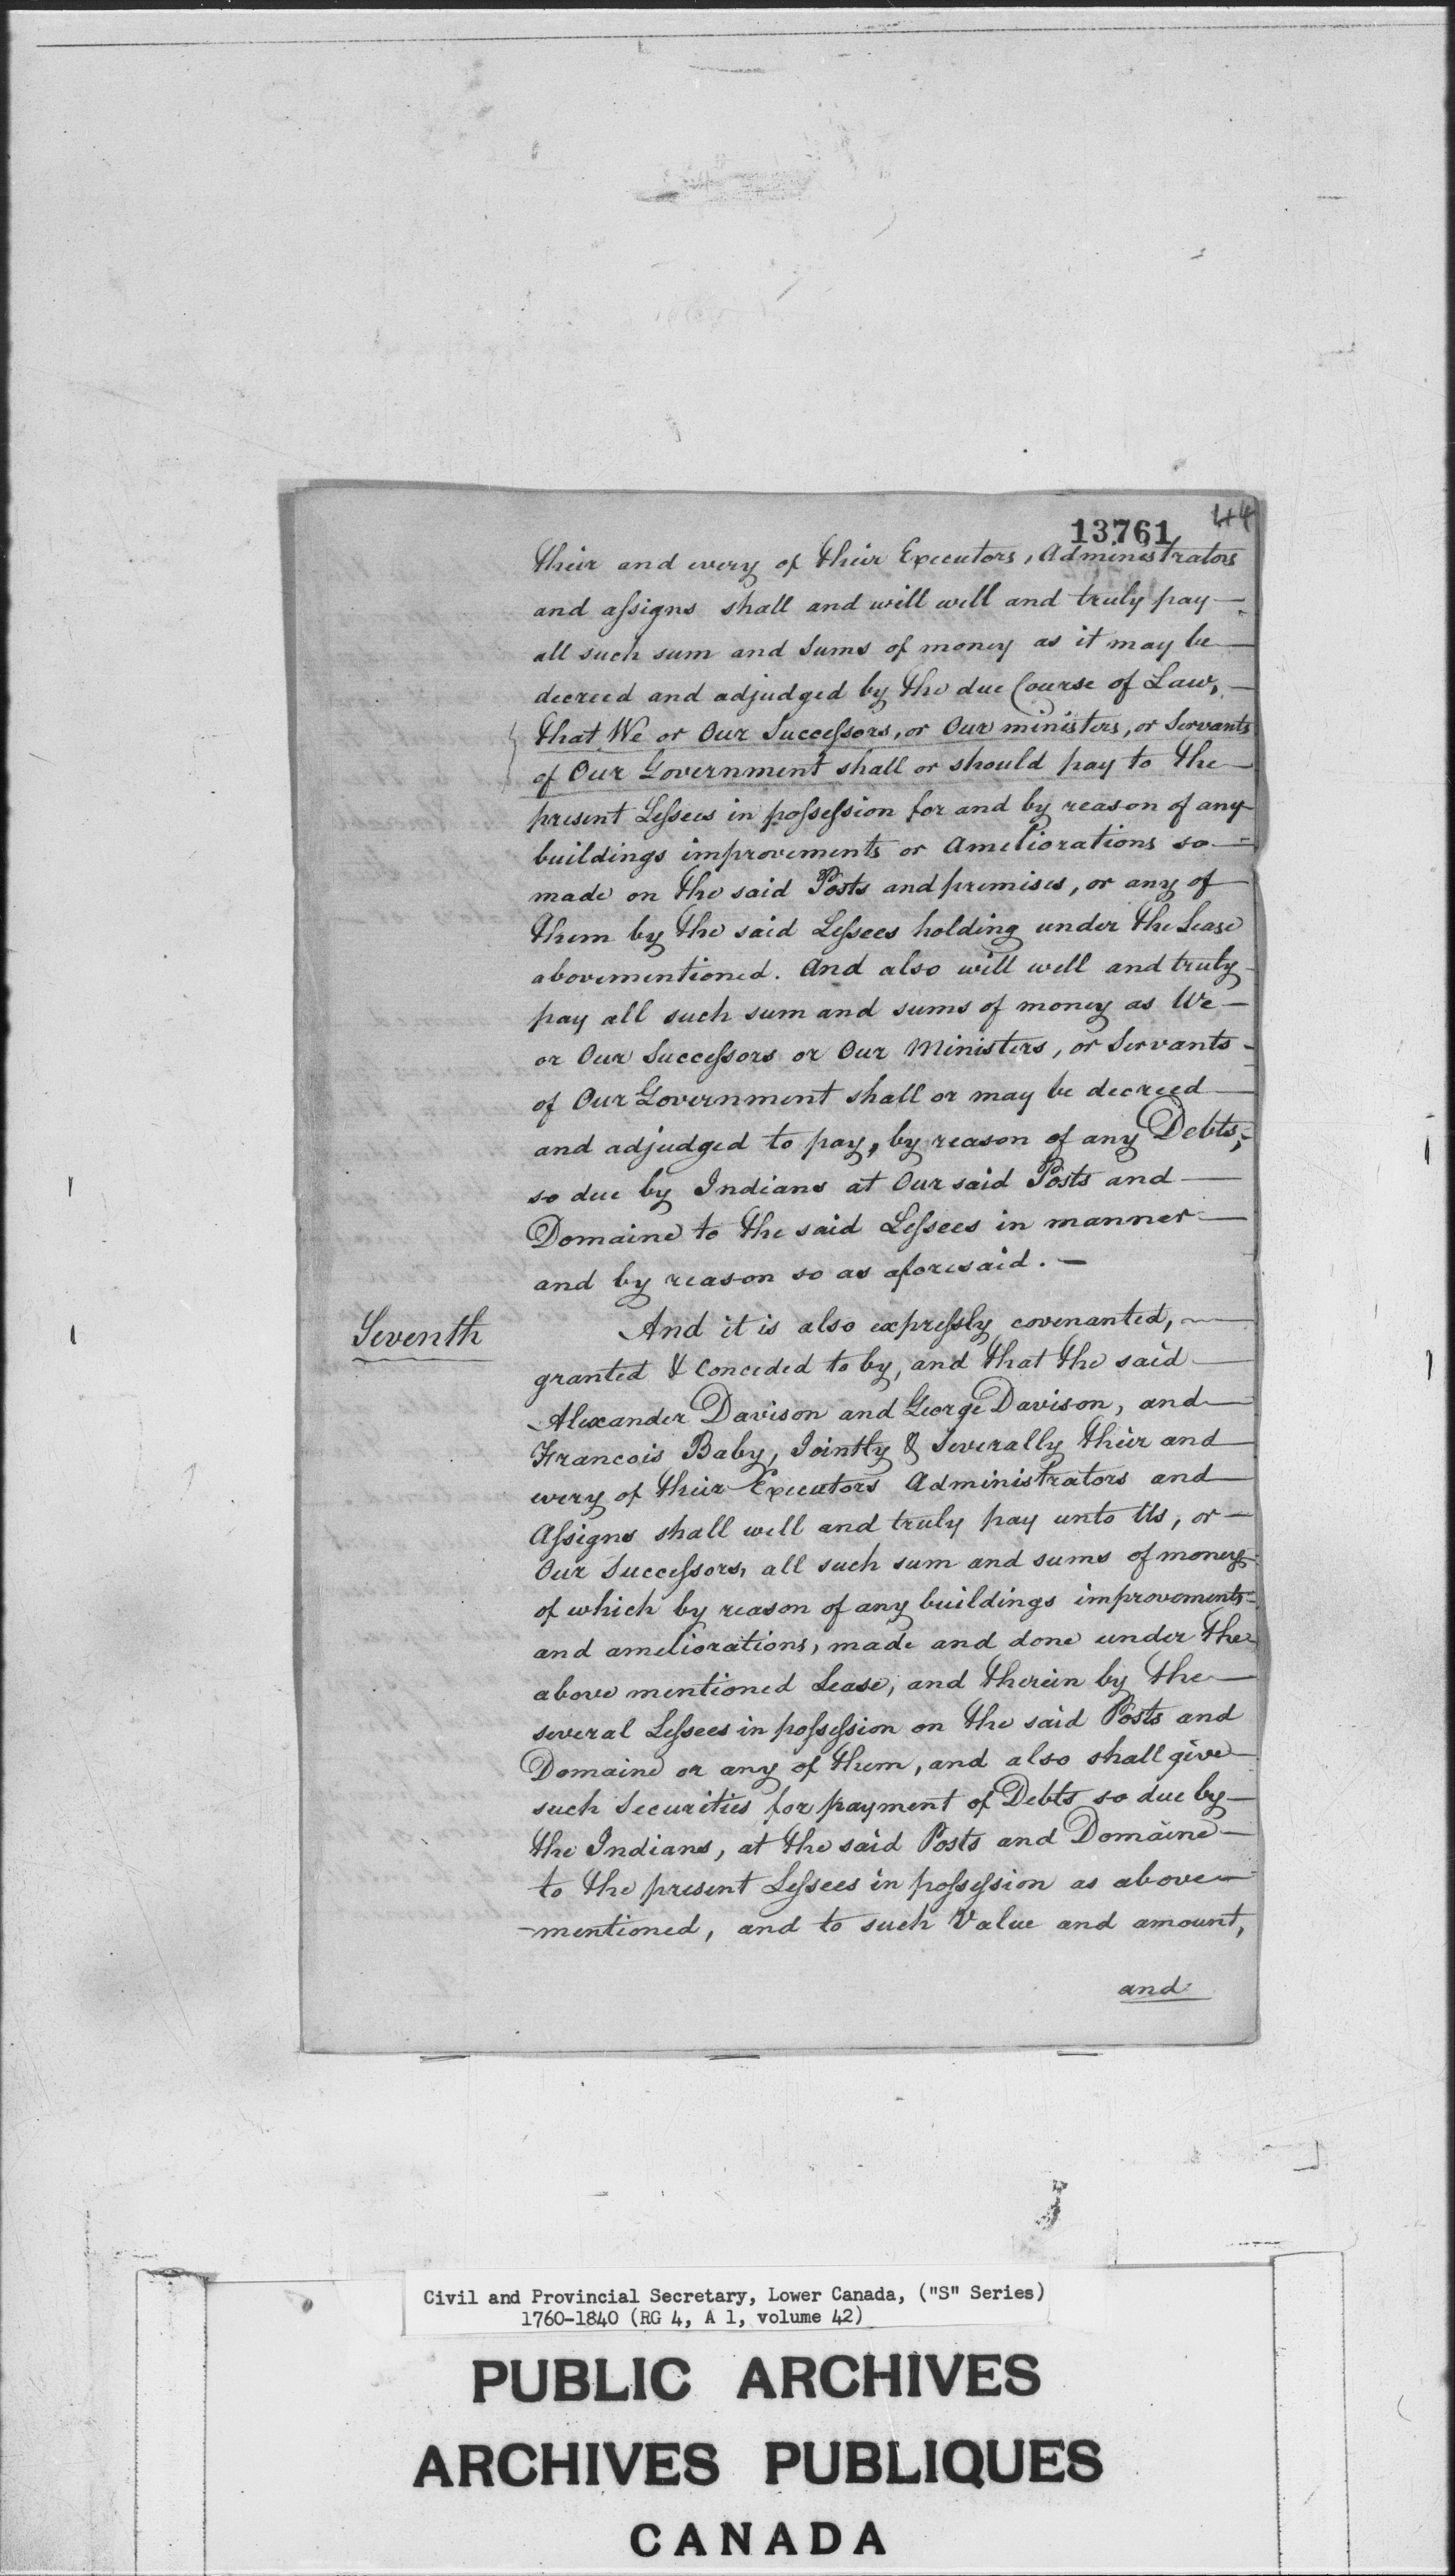 13761
44
their and every of their Executors, Administrators
and assigns shall and will well and truly pay —
all such sum and sums of money as it may be —
decreed and adjudged by the due Course of Law, —
that We or Our Successors, or Our ministers, or Servants
of Our Government shall or should pay to the —
present Lessees in possession for and by reason of any
buildings improvements or Ameliorations so —
made on the said Posts and premises, or any of
them by the said Lessees holding under the Lease
abovementioned. And also will well and truly
pay all such sum and sums of money as We —
or Our Successors or Our Ministers, or Servants -
of Our Government shall or may be decreed —
and adjudged to pay, by reason of any Debts,
so due by Indians at Our said Posts and —
Domaine to the said Lessees in manner —
and by reason so as aforesaid. —
Seventh
And it is also expressly covenanted, —
granted & Conceded to by, and that the said —
Alexander Davison and George Davison, and —
Francois Baby, Jointly & Severally their and
every of their Executors Administrators and —
Assigns shall well and truly pay unto Us, or —
Our Successors, all such sum and sums of money
of which by reason of any buildings improvements
and ameliorations, made and done under the
above mentioned Lease, and therein by the —
several Lessees in possession on the said Posts and
Domaine or any of them, and also shall give —
such Securities for payment of Debts so due by —
the Indians, at the said Posts and Domaine —
to the present Lessees in possession as above —
-mentioned, and to such Value and amount,
and
Civil and Provincial Secretary, Lower Canada, ("S" Series)
1760-1840 (RG 4, A 1, volume 42)
PUBLIC ARCHIVES
ARCHIVES PUBLIQUES
CANADA